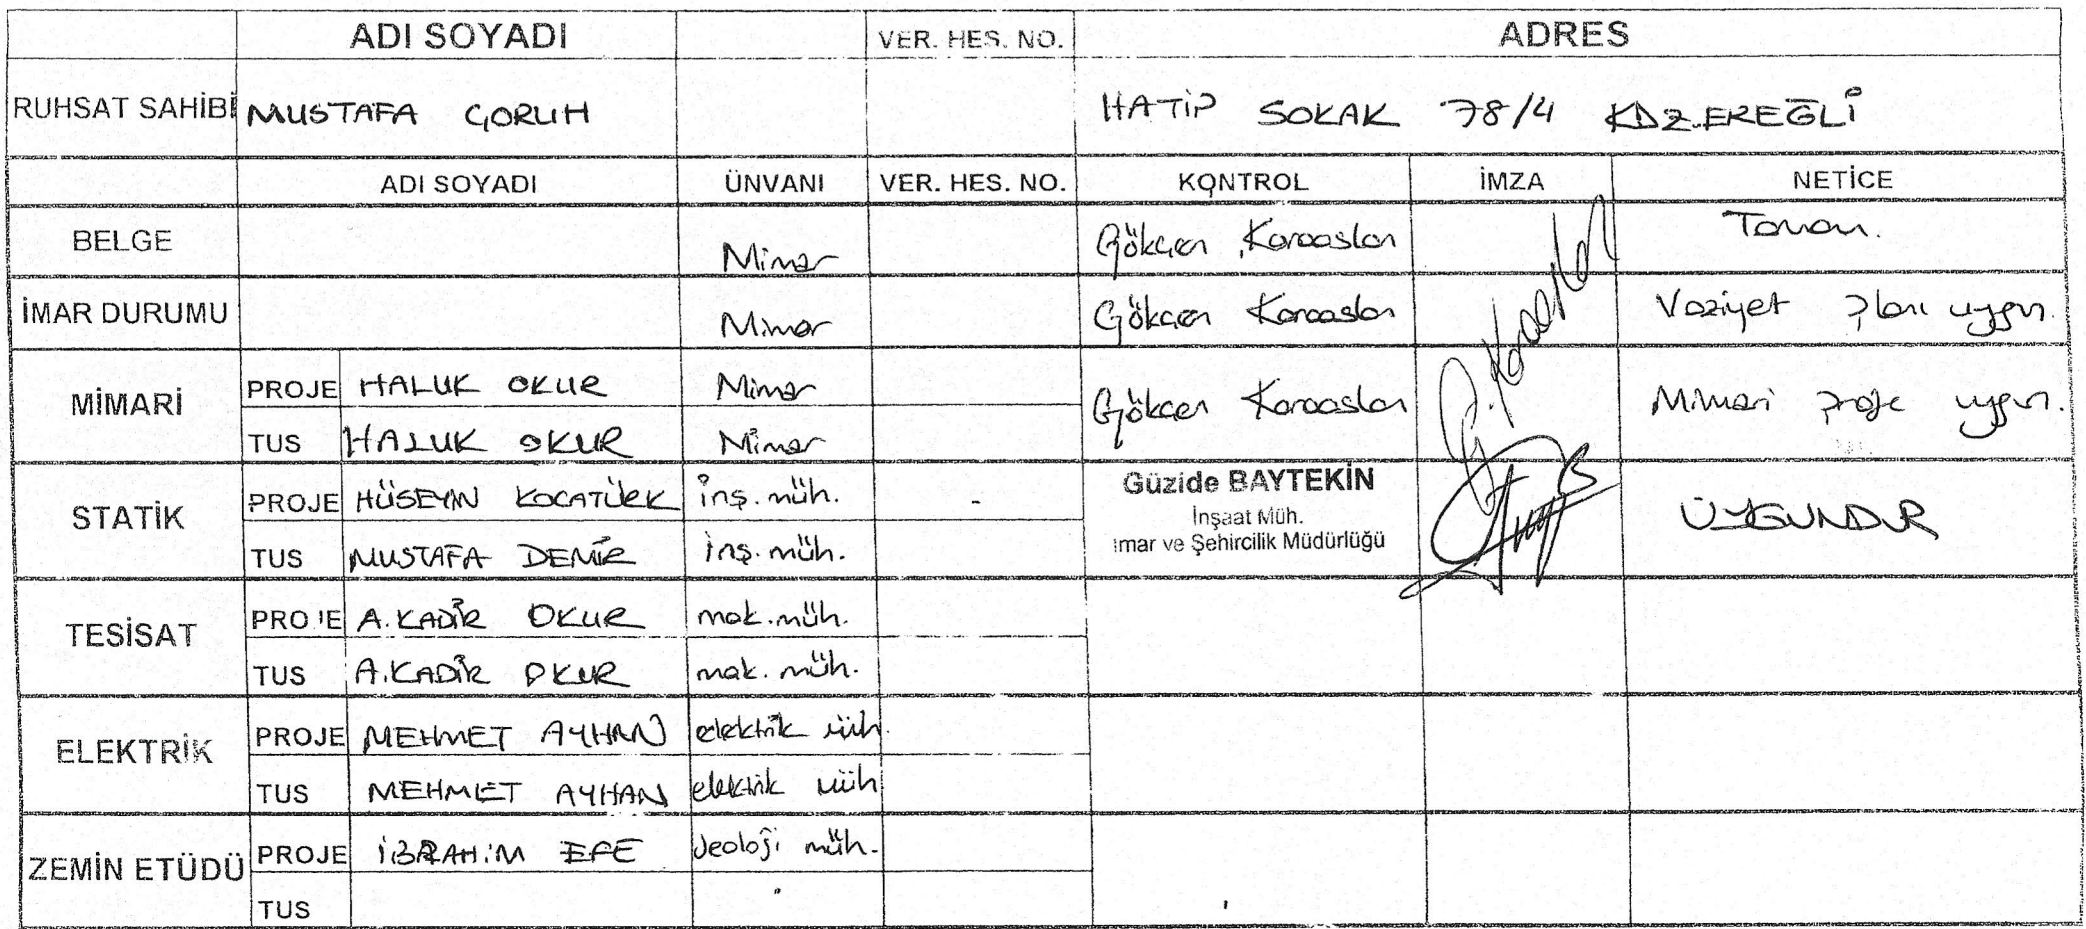 ADI SOYADI VER. HES. NO. ADRES
RUHSAT SAHİBİ MUSTAFA ÇORUH HATİP SOKAK 78/4 KDZ.EREĞLİ
ADI SOYADI ÜNVANI VER. HES. NO. KONTROL İMZA NETİCE
BELGE Mimar Gökçen Karaaslan Tamam.
İMAR DURUMU Mimar Gökçen Karaaslan Vaziyet planı uygun.
MİMARİ PROJE HALUK OKUR Mimar Gökçen Karaaslan G. Karaaslan Mimari proje uygun.
TUS HALUK OKUR Mimar
STATİK PROJE HÜSEYİN KOCATÜRK inş. müh. - Güzide BAYTEKİN ÜYGUNDUR
İnşaat Müh.
imar ve Şehircilik Müdürlüğü
TUS MUSTAFA DEMİR inş. müh.
TESİSAT PROJE A.KADİR OKUR mak.müh.
TUS A.KADİR OKUR mak. müh.
ELEKTRİK PROJE MEHMET AYHAN elektrik müh.
TUS MEHMET AYHAN elektrik müh
ZEMİN ETÜDÜ PROJE İBRAHİM EFE Jeoloji müh.
TUS